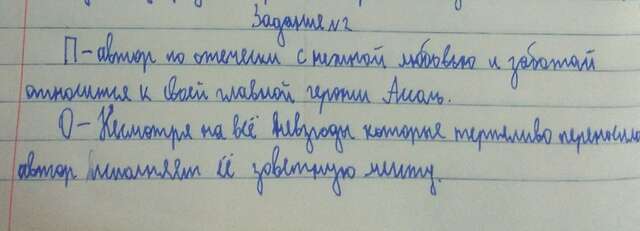 Задание №2
П – автор по отечески с нежной любовью и заботай
относится к своей главной героини Ассоль.
О – Несмотря на всё невзгоды которые терпеливо переносила
автор исполняет её заветную мечту.